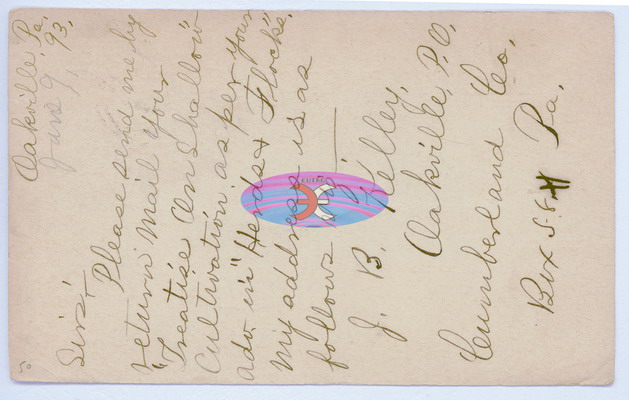 Oakville, Pa.
June 9, 93.
Sirs:
Please send me by
return mail your
"Treatise on Shallow
Cultivation" as per your
adv. in "Herds & Flocks".
My address is as
follows:
J. B. Kelley,
Oakville, P.O.
Cumberland Co,
Box 58 Pa.
50